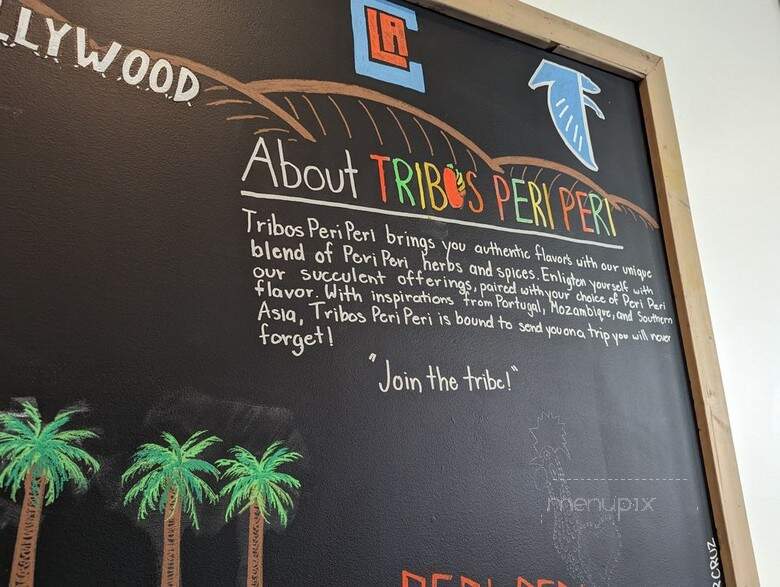 LLYWOOD
CLA
About TRIBOS PERI PERI
Tribos Peri Peri brings you authentic flavors with our unique
blend of Peri Peri herbs and spices. Enligten yourself with
our succulent offerings, paired with your choice of Peri Peri
flavor. With inspirations from Portugal, Mozambique, and Southern
Asia, Tribos Peri Peri is bound to send you on a trip you will never
forget!
"Join the tribe!"
menupix